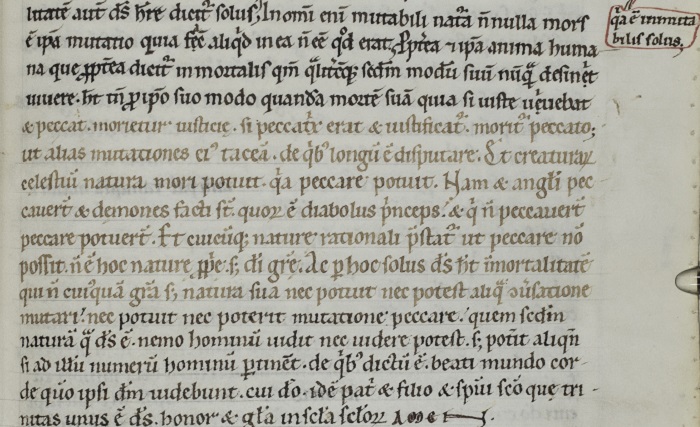 litatē autē d̄s h̄re dicit᷑ solus; Inomī enī mutabili nat̄a n̄nulla mors
ē ip̄a mutatio quia fec̄ aliq̇d in ea n̄ eē q̇d erat; Ꝓpt̄ea ⁊ ip̄a anima huma
na que ꝓpt̄ea dicit᷑ inmortalis qm̄ q̄lit̄cūq; sc̄dm̄ modū suū nūq̄ desinet
uiuere. h̄t tn̄ ꝓ ip̄o suo modo quandā mortē suā quia si iuste uiuebat
& peccat. morietur iusticie. si peccat̄r erat & iustificat᷑. morit᷑ peccato;
ut alias mutationes eiꝰ taceā. de q̇bꝰ longū ē disputare. Et creaturaꝝ
celestiū natura mori potuit. q̇a peccare potuit. Nam & angl̄i pec
cauer̄t & demones facti st̄. quoꝝ ē diabolus ṗnceps. & q̇ n̄ peccauer̄t
peccare potuer̄t. Et cuicūq; nature rationali p̄stat᷑ ut peccare nō
possit. n̄ ē hoc nature ꝓp̄e. s; d̄i gr̄e. Ac ꝑ hoc solus d̄s h̄t īmortalitatē
qui n̄ cuiꝰquā gr̄a s; natura sua nec potuit nec potest aliq̄ ↄuersatione
mutari. nec potuit nec poterit mutatione peccare. quem sc̄dm̄
naturā q̄ d̄s ē. nemo hominū uidit nec uidere potest. s; pot̄it aliqn̄
si ad illū numerū hominū ꝑtinēt. de q̇bꝰ dictū ē. beati mundo cor-
de quō ipsi dm̄ uidebunt. cui d̄o. idē pat̄ & filio & sp̄ui sc̄o que tri-
nitas unus ē d̄s. honor & gl̄a in sc̄la sc̄loꝝ amen.
q̇a ē inmuta
bilis solus;